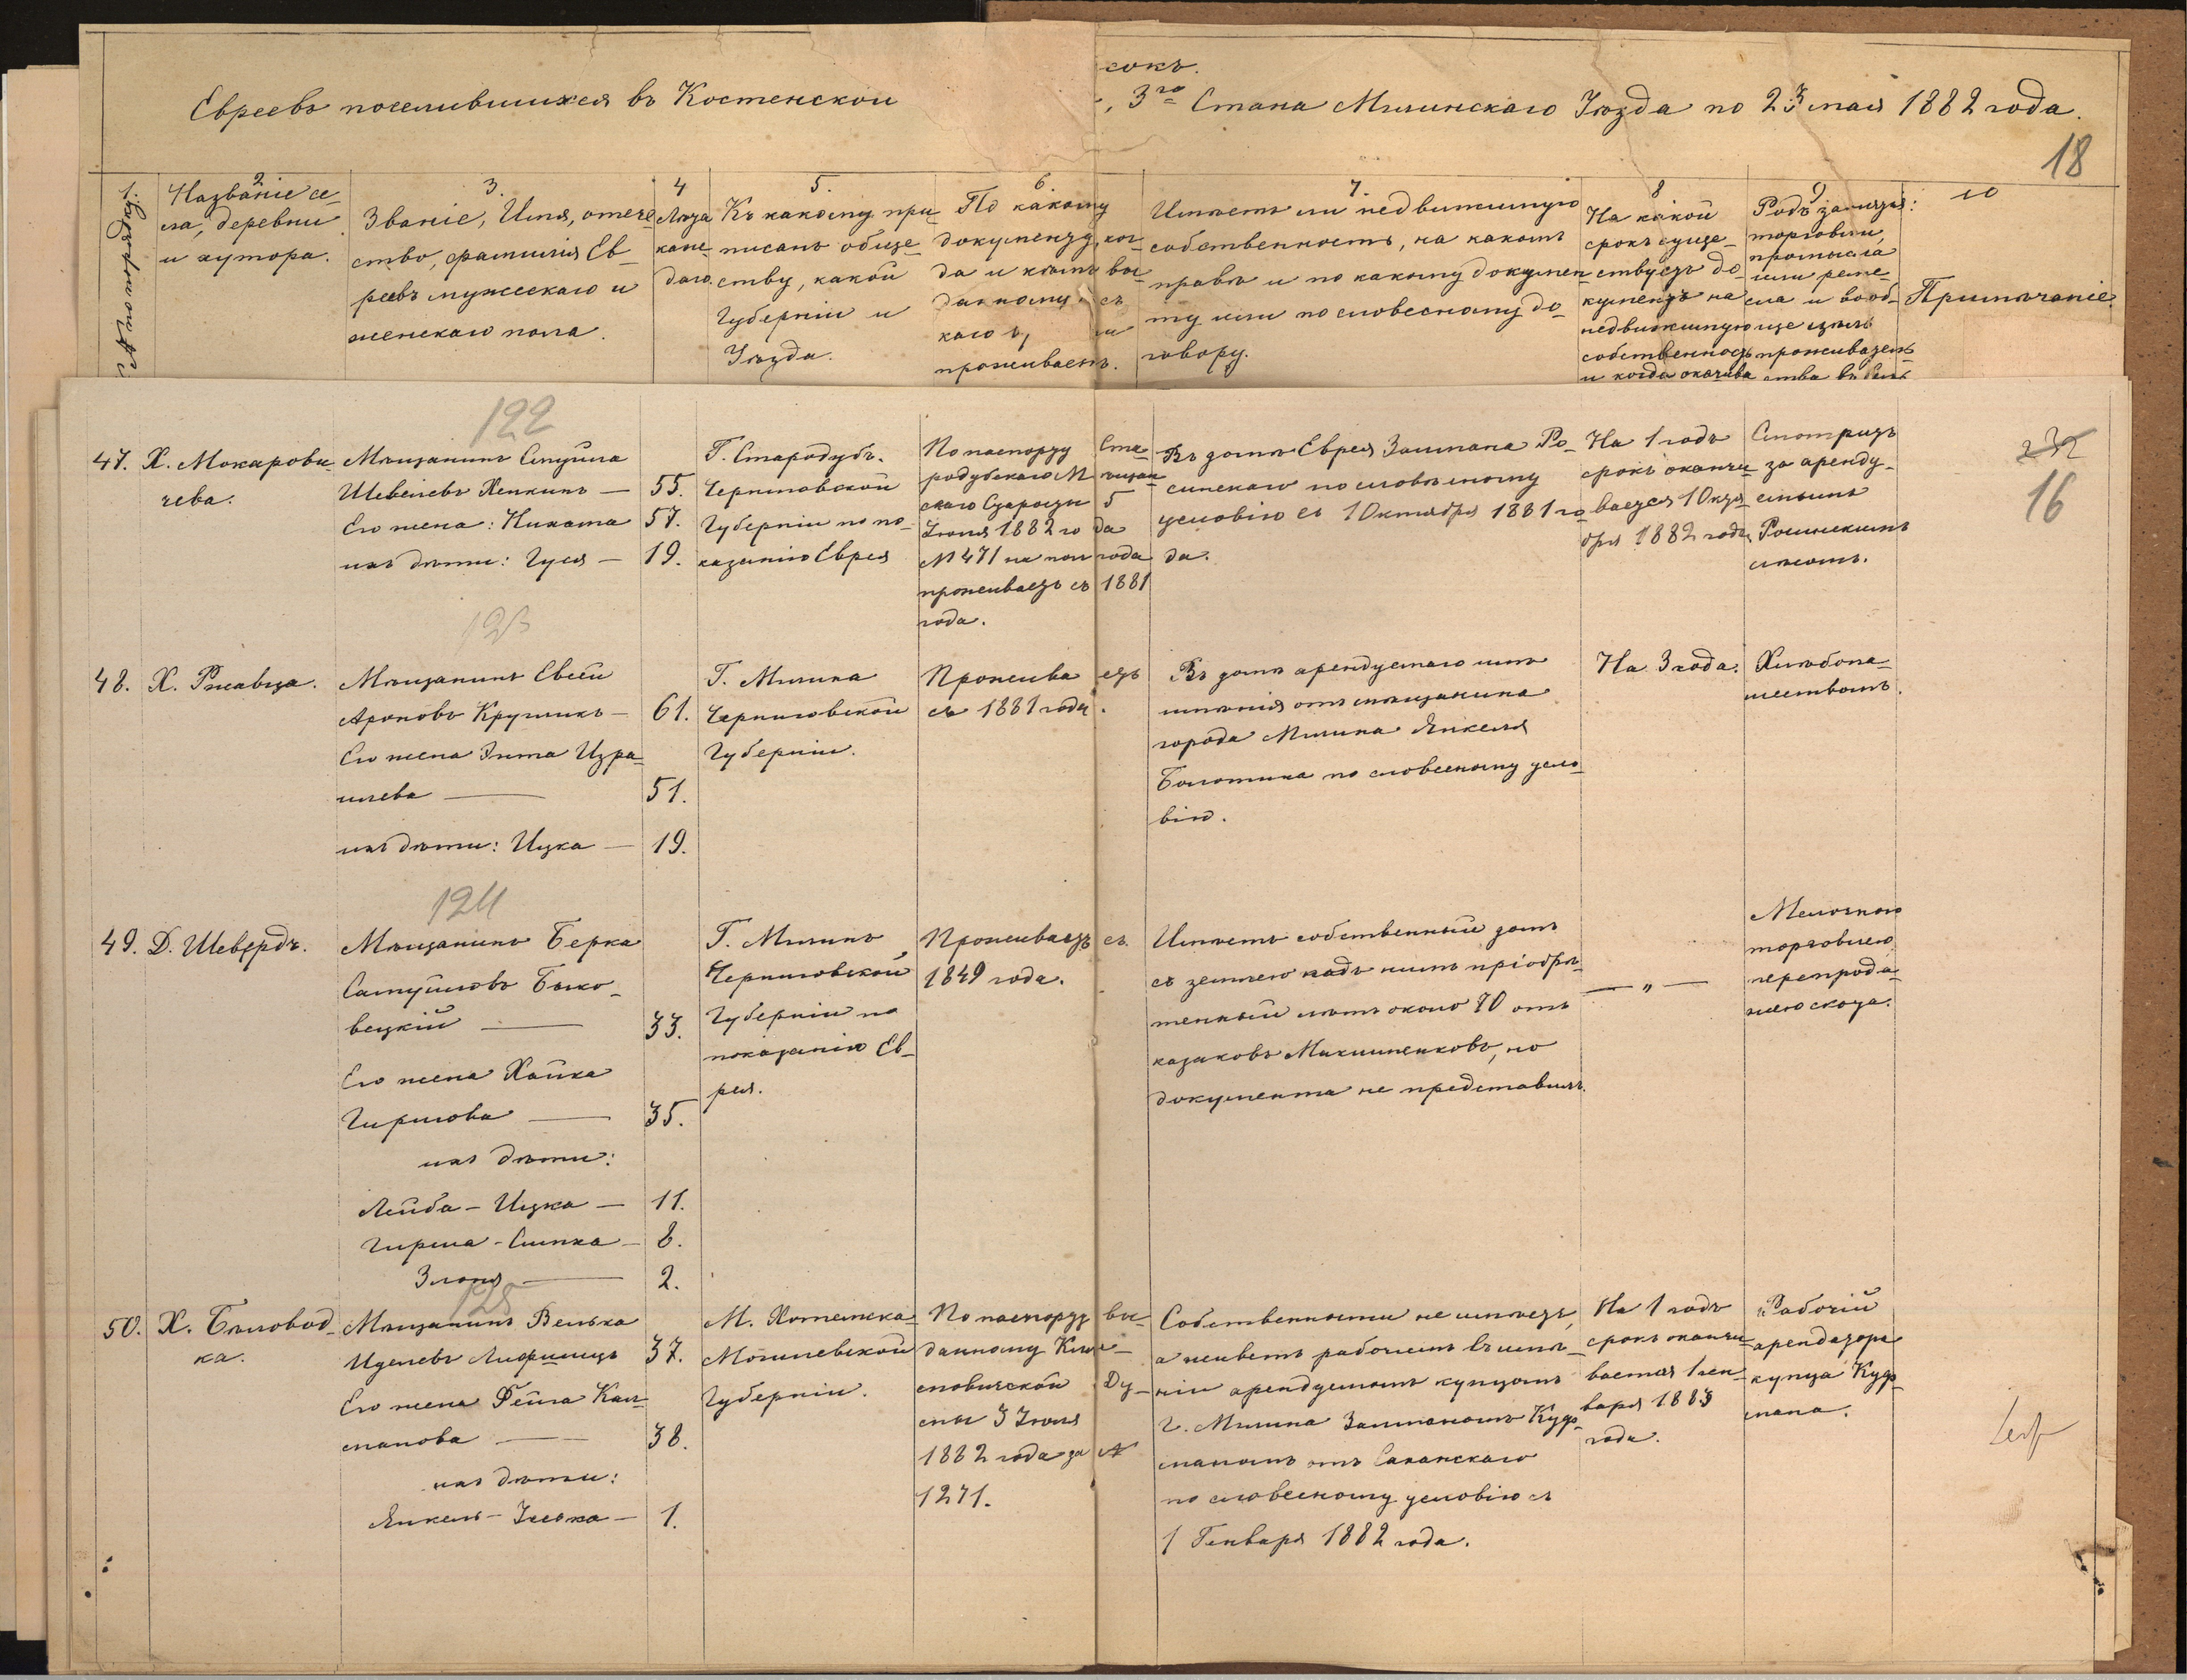 сокъ.
Евреевъ поселившихся въ Костенской
, 3го Стана Мглинскаго Уѣзда по 23 мая 1882 года.
18
1.
№ по порядку
2
Названіе се-
ла, деревни
и хутора.
3.
Званіе, Имя, отече-
ство, фамилія Ев-
реевъ мужескаго и
женскаго пола.
4
Лѣта
каж-
даго.
5.
Къ какому при-
писанъ обще-
ству, какой
Губерніи и
Уѣзда.
6.
По какому
документу, ког-
да и кѣмъ вы-
данному, съ
проживаетъ.
7.
Имѣетъ ли недвижимую
собственность, на какомъ
правѣ и по какому докумен-
ту или по словесному до-
говору.
8
На какой
срокъ суще-
ствуетъ до-
кументъ на
недвижимую
собственность
и когда оканчива
9
Родъ занятія:
торговли,
промысла
или реме-
сла и вооб-
ще цѣль
проживатель
ства въ
10
Примѣчаніе.
122
47. Х. Макарови-
чева.
Мѣщанинъ Смуйла
Шевелевъ Хенкинъ — 55.
Его жена: Нихама 57.
ихъ дѣти: Гуся — 19.
Г. Стародубъ.
Черниговской
Губерніи по по-
казанію Еврея
По паспорту Ста-
родубскаго Мѣщан
скаго Старосты 5
Іюня 1882 года
№ 471 на полгода
проживаетъ съ 1881
года.
Въ домѣ Еврея Залмана Ро-
синскаго по словѣсному
условію съ 1 Октября 1881 го
да.
На 1 годъ
срокъ оканчи-
вается 1 Октя
бря 1882 года
Смотритъ
за аренду-
емымъ
Росинскимъ
лѣсомъ.
232
16
123
48. Х. Ржавца.
Мѣщанинъ Евсей
Ароновъ Кругликъ — 61.
Его жена Энта Изра-
илева — 51.
ихъ дѣти: Ицка — 19.
Г. Мглина
Черниговской
Губерніи.
Проживаетъ
съ 1881 года.
Въ домѣ арендуемаго имъ
имѣнія отъ мѣщанина
города Мглина Янкеля
Болотина по словесному усло-
вію.
На 3 года.
Хлѣбопа-
шествомъ.
124
49. Д. Шевердъ.
Мѣщанинъ Берка
Самуйловъ Быко-
вецкій — 33.
Его жена Хайка
Гиршова — 35.
ихъ дѣти:
Лейба - Ицка — 11.
Гирша - Симха — 8.
Злотя — 2.
Г. Мглинъ
Черниговской
Губерніи по
показанію Ев-
рея.
Проживаетъ съ
1849 года.
Имѣетъ собственный домъ
съ землею подъ нимъ пріобрѣ-
тенный лѣтъ около 70 отъ
казаковъ Михлиненковъ, но
документа не представилъ.
— „ —
Мелочною
торговлею
перепрода-
жею скота.
125
50. Х. Бѣловод-
ка.
Мѣщанинъ Велька
Иделевъ Лифшицъ 37.
Его жена Фейга Кал-
манова — 38.
ихъ дѣти:
Янкель - Іоська — 1.
М. Хотимска-
Могилевской
Губерніи.
По паспорту вы-
данному Кли-
мовичской Ду-
мы 3 Іюля
1882 года за №
1271.
Собственности не имѣетъ,
а живетъ рабочимъ въ имѣ-
ніи арендуемомъ купцомъ
г. Мглина Залманомъ Куф-
маномъ отъ Саханскаго
по словесному условію съ
1 Генваря 1882 года.
На 1 годъ
срокъ оканчи-
вается 1 ген-
варя 1883
года.
Рабочій
арендатора
купца Куф-
мана.